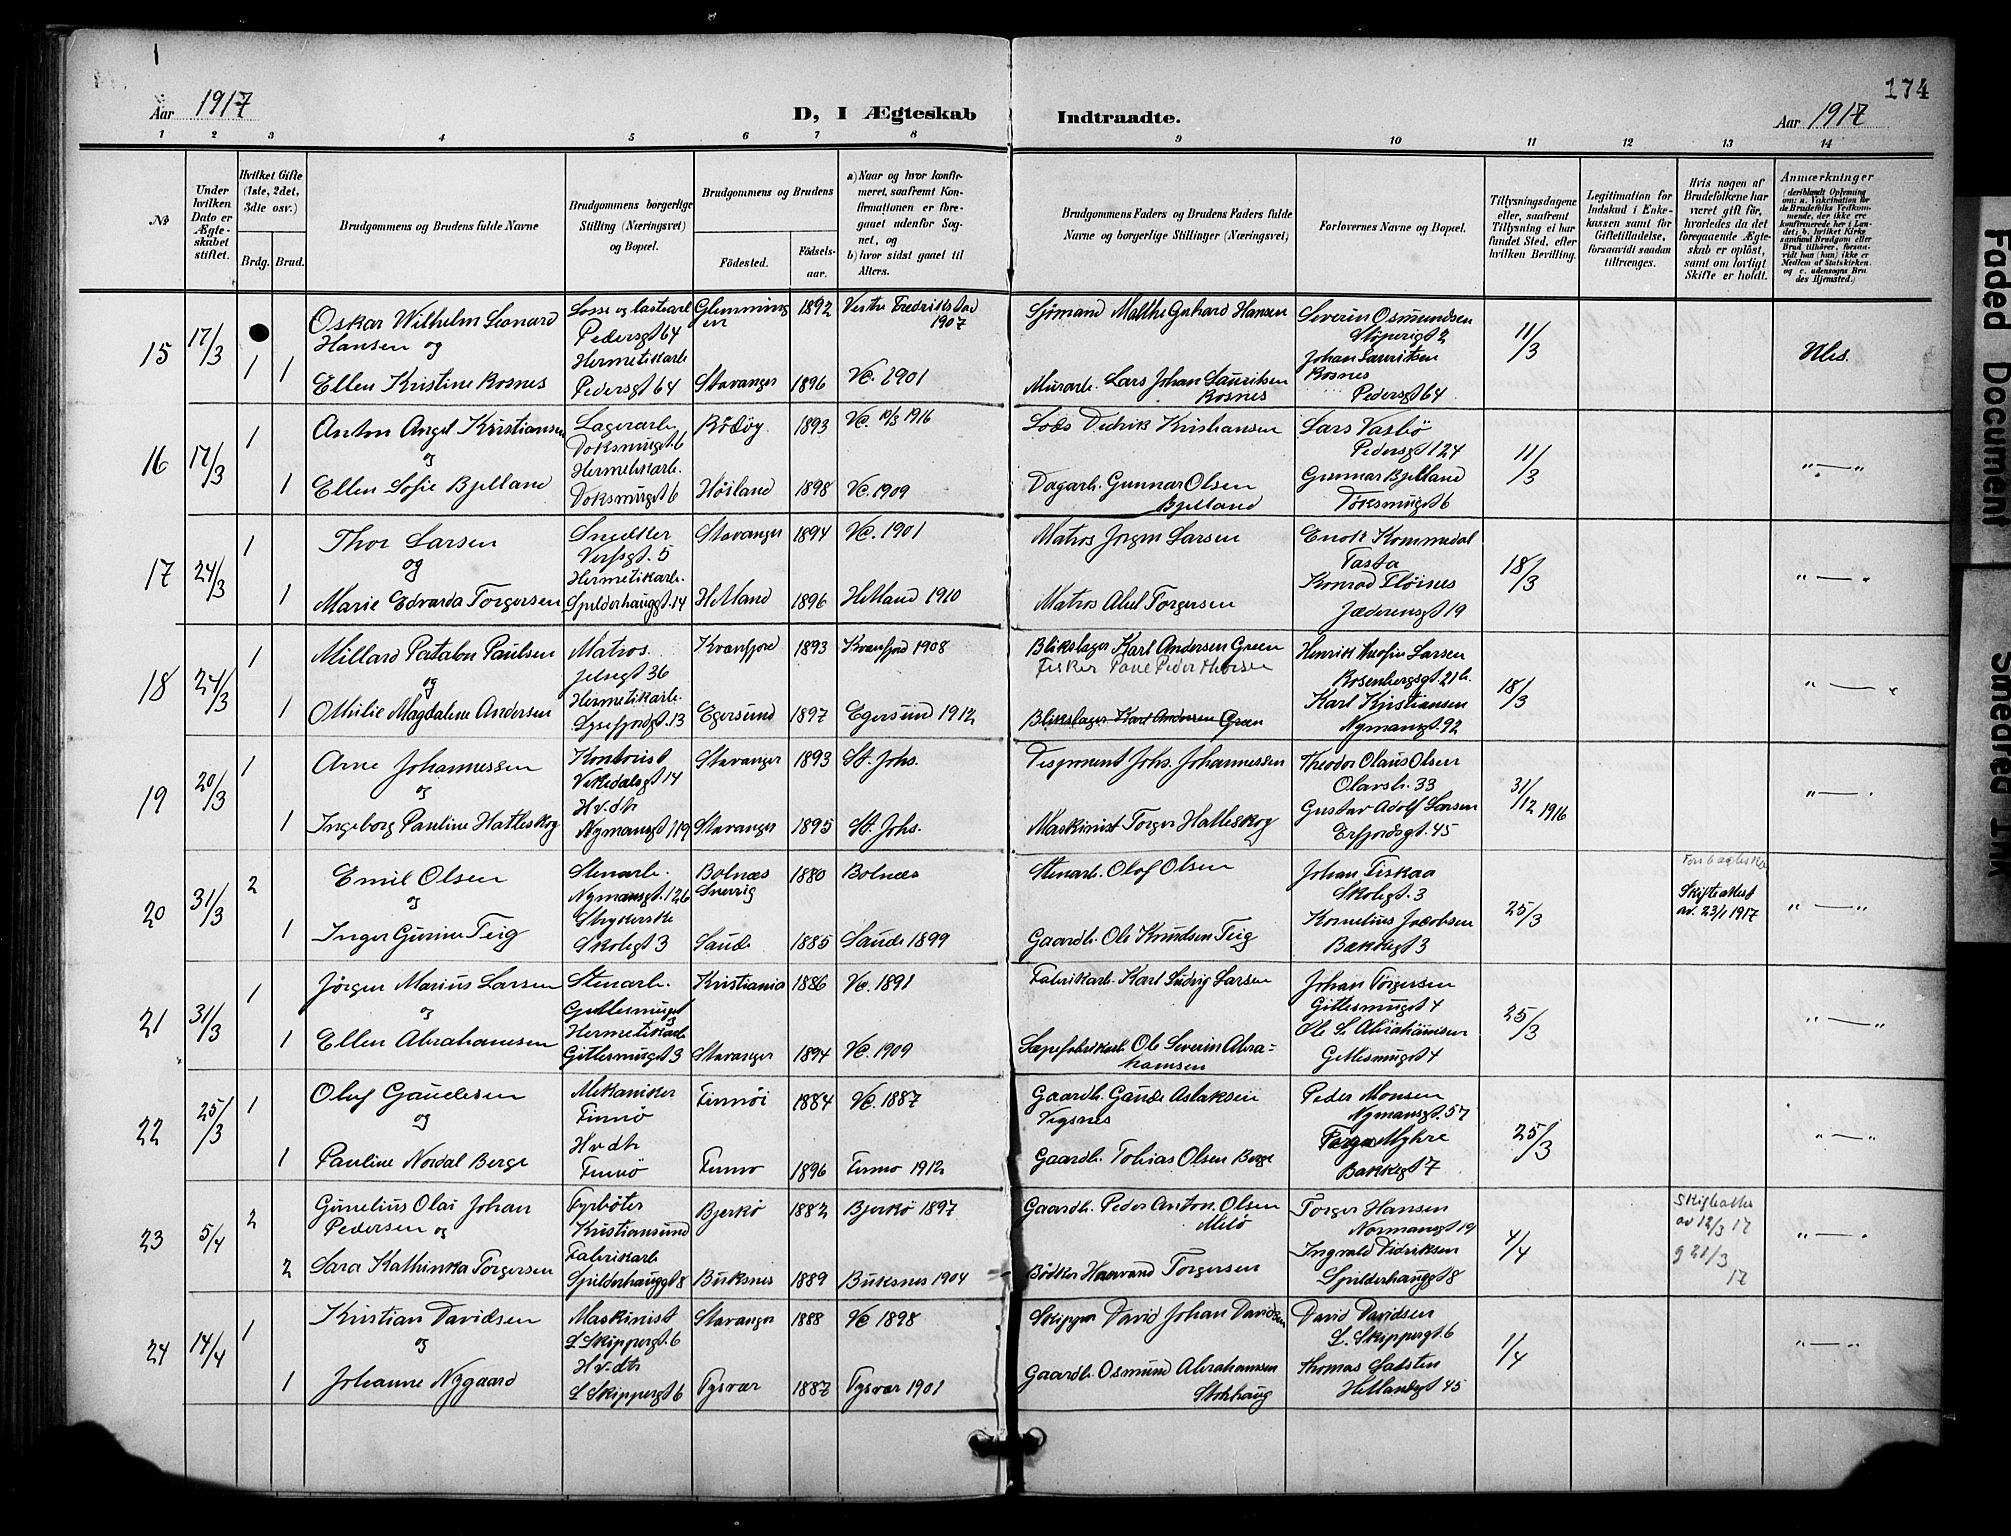 174
Aar 1917
D, I Ægteskab Indtraadte.
Aar 1917
1 2 3 4 5 6 7 8 9 10 11 12 13 14
No
Under hvilken Dato er Ægteskabet stiftet.
Hvilket Gifte (1ste, 2det, 3die osv.)
Brdg. Brud.
Brudgommens og Brudens fulde Navne
Brudgommens borgerlige Stilling (Næringsvei) og Bopæl.
Brudgommens og Brudens
Fødested. Fødselsaar.
a) Naar og hvor konfirmeret, saafremt Konfirmationen er foregaaet udenfor Sognet, og
b) hvor sidst gaaet til Alters.
Brudgommens Faders og Brudens Faders fulde Navne og borgerlige Stillinger (Næringsvei)
Forlovernes Navne og Bopæl.
Tillysningsdagene eller, saafremt Tillysning ei har fundet Sted, efter hvilken Bevilling.
Legitimation for Indskud i Enkekassen samt for Giftetilladelse, forsaavidt saadan tiltrænges.
Hvis nogen af Brudefolkene har været gift før, hvorledes da det foregaaende Ægteskab er opløst, samt om lovligt Skifte er holdt.
Anmærkninger
15 17/3 1 1
Oskar Wilhelm Leonard
Hansen og
Ellen Kristine Rosnes
Losse og lastearb
Pedersgt 64
Hermetikarb
Pedersgt 64
Glemmingen 1892 Vestre Fredrikstad 1907
Stavanger 1896 Vc. 1901
Sjömand Malthe Gerhard Hansen
Murarb. Lars Johan Lauritsen
Rosnes
Severin Osmundsen
Støperigt 2
Johan Lauritsen
Rosnes
Pedersgt 64
11/3
16 17/3 1 1
Anton Angel Kristiansen
og
Ellen Sofie Bjelland
Lagerarb
Doksmugt 6
Hermetikarb.
Doksmugt 6
Rödöy 1893 Vc 1916
Høiland 1898 Vc. 1909
Lods Didrik Kristiansen
Dagarb. Gunnar Olsen
Bjelland
Lars Vasbö
Pedersgt 124
Gunnar Bjelland
Doksmugt 6
11/3
„ — „
17 24/3 1 1
Thor Larsen
og
Marie Edvarda Torgersen
Snedker
Verfsgt. 5
Hermetikarb.
Spilderhauggt. 14
Stavanger 1894 Vc. 1901
Hetland 1896 Hetland 1910
Matros Jörgen Larsen
Matros Abel Torgersen
Enok Kommedal
Tasta
Konrad Fløisnes
Jæderensgt 19
18/3
„ — „
18 24/3 1 1
Millard Patalon Paulsen
og
Othilie Magdalene Andersen
Matros
Jelsegt 36
Hermetikarb.
Lysefjordgt. 13
Kvæfjord 1893 Kvæfjord 1908
Egersund 1897 Egersund 1912
Blikslager Karl Andersen Green
Fisker Paul Peder
Blikslager Karl Andersen Green
Henrik Larsen
Rosenbergsgt. 21b.
Karl Kristiansen
Nymansgt. 92
18/3
„ — „
19 20/3 1 1
Arne Johannessen
og
Ingeborg Pauline Hatleskog
Kontorist
Vikedalsgt 14
Hv. dtr
Nymansgt 119
Stavanger 1893 St. Johs.
Stavanger 1895 St. Johs.
Johs. Johannessen
Maskinist Torger Hatleskog
Theodor Olaus Olsen
Olavsk. 33
Gustav Adolf Larsen
Erfjordsgt. 45
31/12 1916
„ — „
20 31/3 2 1
Emil Olsen
og
Inger Gurine Teig
Stenarb.
Nymansgt. 126
Strykerske
Skolegt 3
Bolnæs Sverrig 1880 Bolnæs
Saude 1885 Saude 1899
Stenarb. Olof Olsen
Gaardb. Ole Knudsen Teig
Johan Fiskaa
Skolegt. 3
Kornelius Jacobsen
Bakkegt 3
25/3
Skifteattest
av. 23/1 1917
„ — „
21 31/3 1 1
Jörgen Marius Larsen
og
Ellen Abrahamsen
Stenarb.
Gittlesmugt 3
Hermetikarb
Gittlesmugt 3
Kristiania 1886 Vc. 1891
Stavanger 1894 Vc. 1909
Fabrikarb. Karl Ludvig Larsen
Sæpefabrikarb. Ole Severin Abrahamsen
Johan Torgersen
Gittlesmugt 4
Ole S. Abrahamsen
Gittlesmugt 4
25/3
„ — „
22 25/3 1 1
Oluf Gaudesen
og
Pauline Nordal Berge
Mekaniker
Finnö
Hv dtr
Finnö
Finnöi 1884 Vc. 1887
Finnö 1896 Finnö 1912
Gaardb. Gaude Aslaksen
Vignes
Gaardb. Tobias Olsen Berge
Peder Monsen
Nymansgt. 57
Myhre
Bakkegt 7
25/3
„ — „
23 5/4 2 2
Gunelius Olai Johan
Pedersen og
Sara Kathinka Torgersen
Fyrbøter
Kristiansund
Fabrikarb
Spilderhauggt 8
Bjerkö 1882 Bjerkö 1897
Buksnes 1889 Buksnes 1904
Gaardb. Peder Anton Olsen
Melö
Bödker Haavard Torgersen
Torger Hansen
Normansgt 19
Ingvald Didriksen
Spilderhauggt 8
4/4
Skifteattes
av 12/3 17
g 21/3
17
„ — „
24 14/4 1 1
Kristian Davidsen
og
Johanne Nygaard
Maskinist
L. Skippergt. 6
Hv. dtr
L Skippergt 6
Stavanger 1888 Vc 1898
Tysvær 1887 Tysvær 1901
Skipper David Johan Davidsen
Gaardb. Osmund Abrahamsen
Stokhaug
David Davidsen
L. Skippergt. 6
Thomas Ladsten
Hetlandsgt 45
1/4
„ — „
Faded Document
Smeared Ink